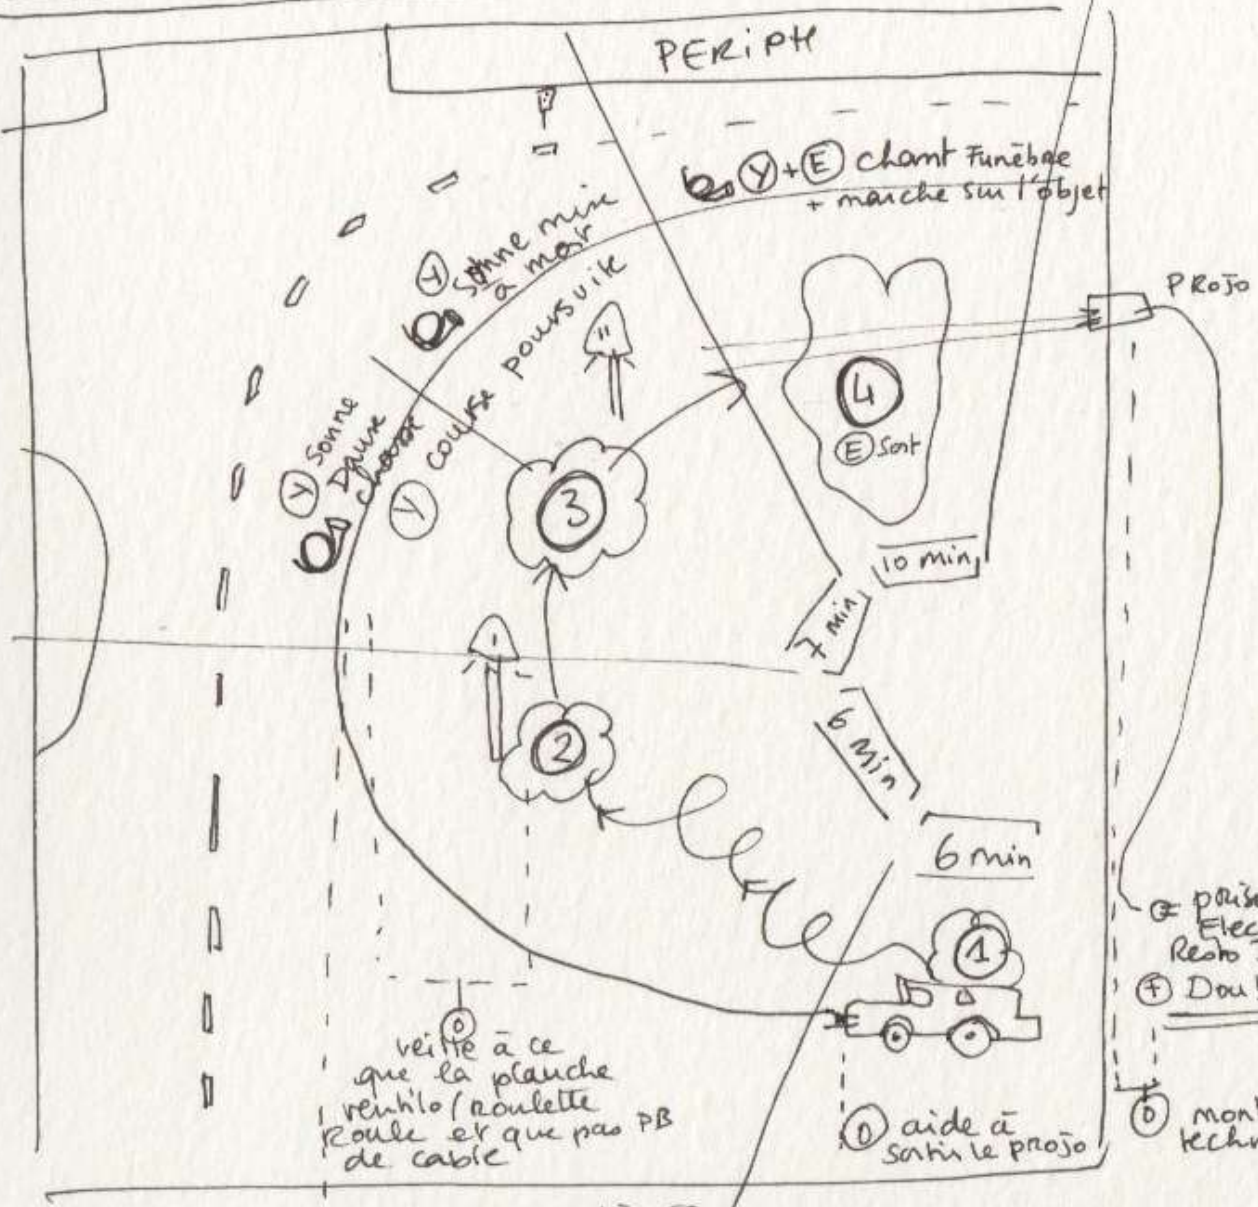 PERIPH
Y + E chant Funèbre
+ marche sur l'objet
Y Sonne mise
à mort
PROJO
Y course poursuite
Y Sonne
Danse
chasse
4
E Sort
3
10 min
7 min
6 Min
2
6 min
1
prise
Elec
Resto
+ Dou
O
veille à ce
que la planche
ventilo/roulette
Roule et que pas PB
de cable
O aide à
sortir le projo
O mon
techn